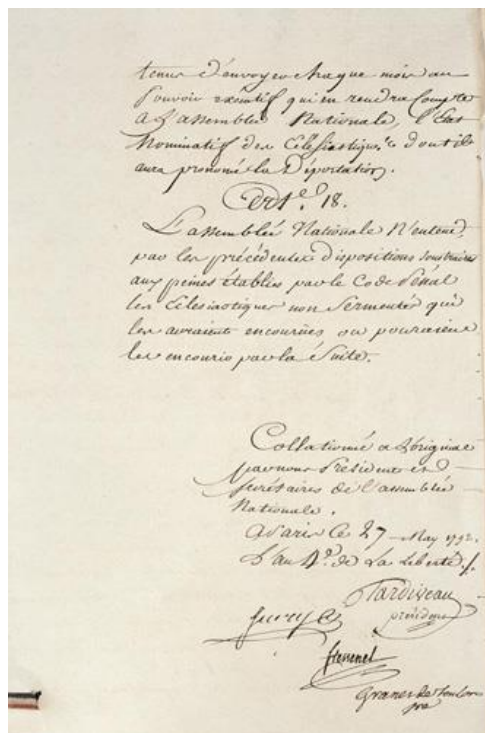 tenu d'envoyer chaque mois au
Pouvoir exécutif qui en rendra Compte
a L'assemblée Nationale, l'Etat
Nominatif des Eclésiastiques dont il
aura prononcé la Déportation.
Art.e 18.
L'assemblée Nationale N'entend
par les précédentes Dispositions soustraire
aux peines établies par le Code Pénal
les Eclesiastiques non Sermentés qui
les auraient encourrües ou pouraient
les encourir par la Suite.
Collationné a L'original
par nous President et
Secrétaires de l'assemblée
Nationale.
A Paris Ce 27 May 1792.
L'an 4.e de La Liberté ./.
Tardiveau
président
fressenel
Granet de toulon